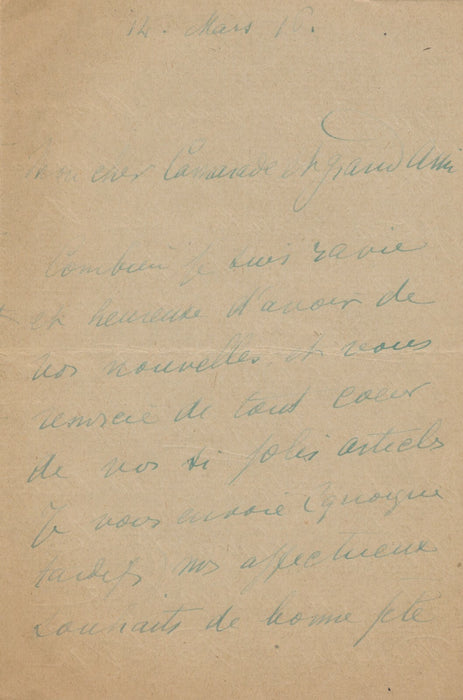 14. Mars 16.
Mon cher Camarade et grand Ami
Combien je suis ravie
et heureuse d'avoir de
vos nouvelles et vous
remercie de tout coeur
de vos si jolis articles
Je vous envoie quoique
tardifs nos affectueux
souhaits de bonne fête